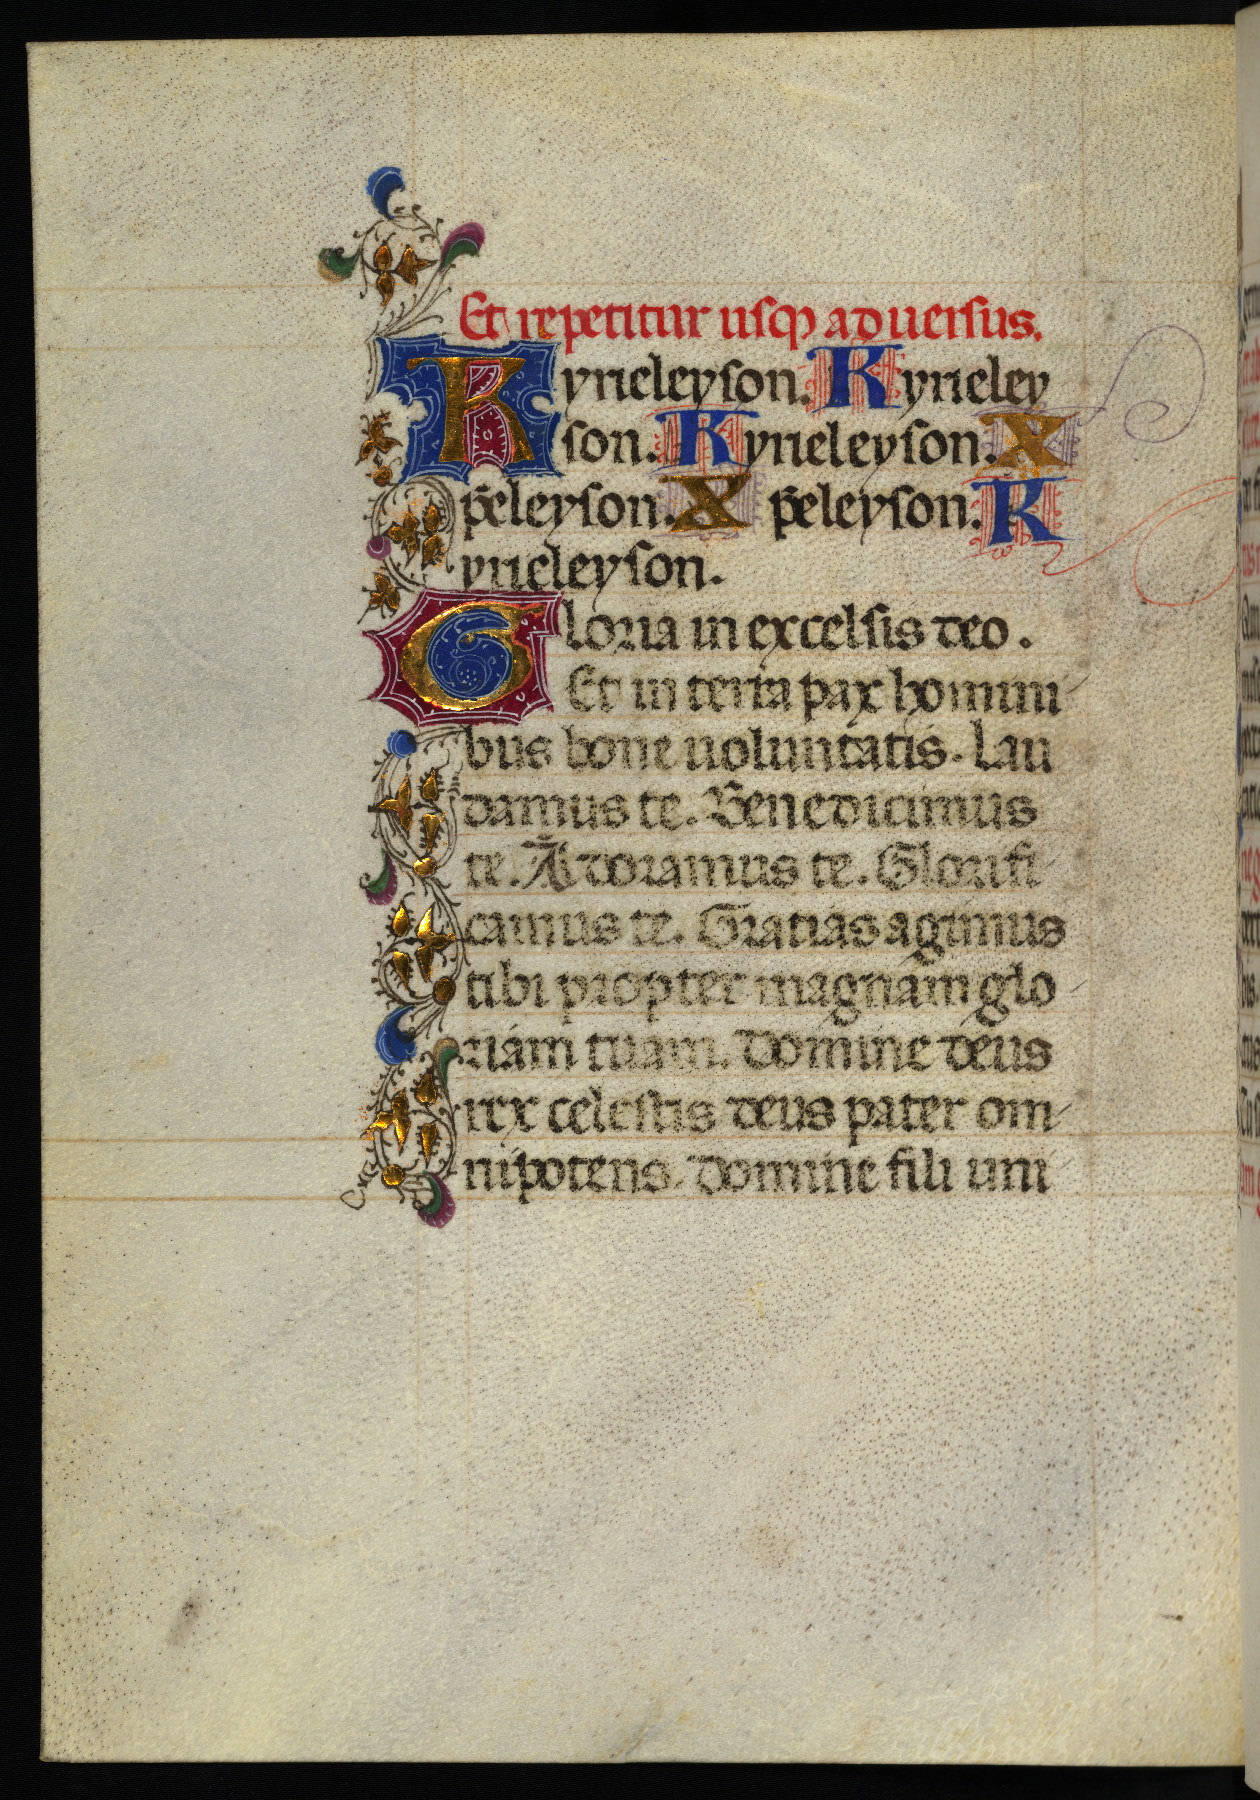 Et repetitur usqȝ ad uersus.
Kyrieleyson. Kyrieley
son. Kyrieleyson. X
p̄eleyson. X p̄eleyson. K
yrieleyson.
Gloria in excelsis deo.
Et in terra pax homini
bus bone uoluntatis. Lau
damus te. Benedicimus
te. Adoramus te. Glorifi
camus te. Gratias agimus
tibi propter magnam glo
riam tuam. Domine deus
rex celestis deus pater om
nipotens. Domine fili uni